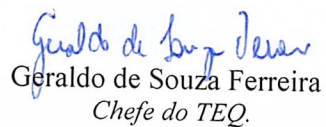 Geraldo de Souza Ferreira
Geraldo de Souza Ferreira
Chefe do TEQ.